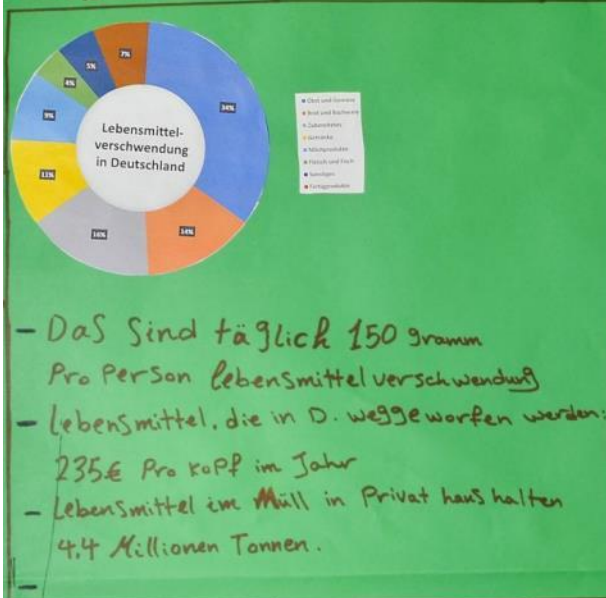 7%
5%
4%
34%
9%
Lebensmittel-
verschwendung
in Deutschland
11%
16%
14%
Obst und Gemüse
Brot und Backwaren
Zubereitetes
Getränke
Milchprodukte
Fleisch und Fisch
Sonstiges
Fertigprodukte
- Das Sind täglich 150 gramm
Pro Person lebensmittelverschwendung
- lebensmittel. die in D. weggeworfen werden:
235€ Pro Kopf im Jahr
- Lebensmittel im Müll in Privat haushalten
4.4 Millionen Tonnen.
-